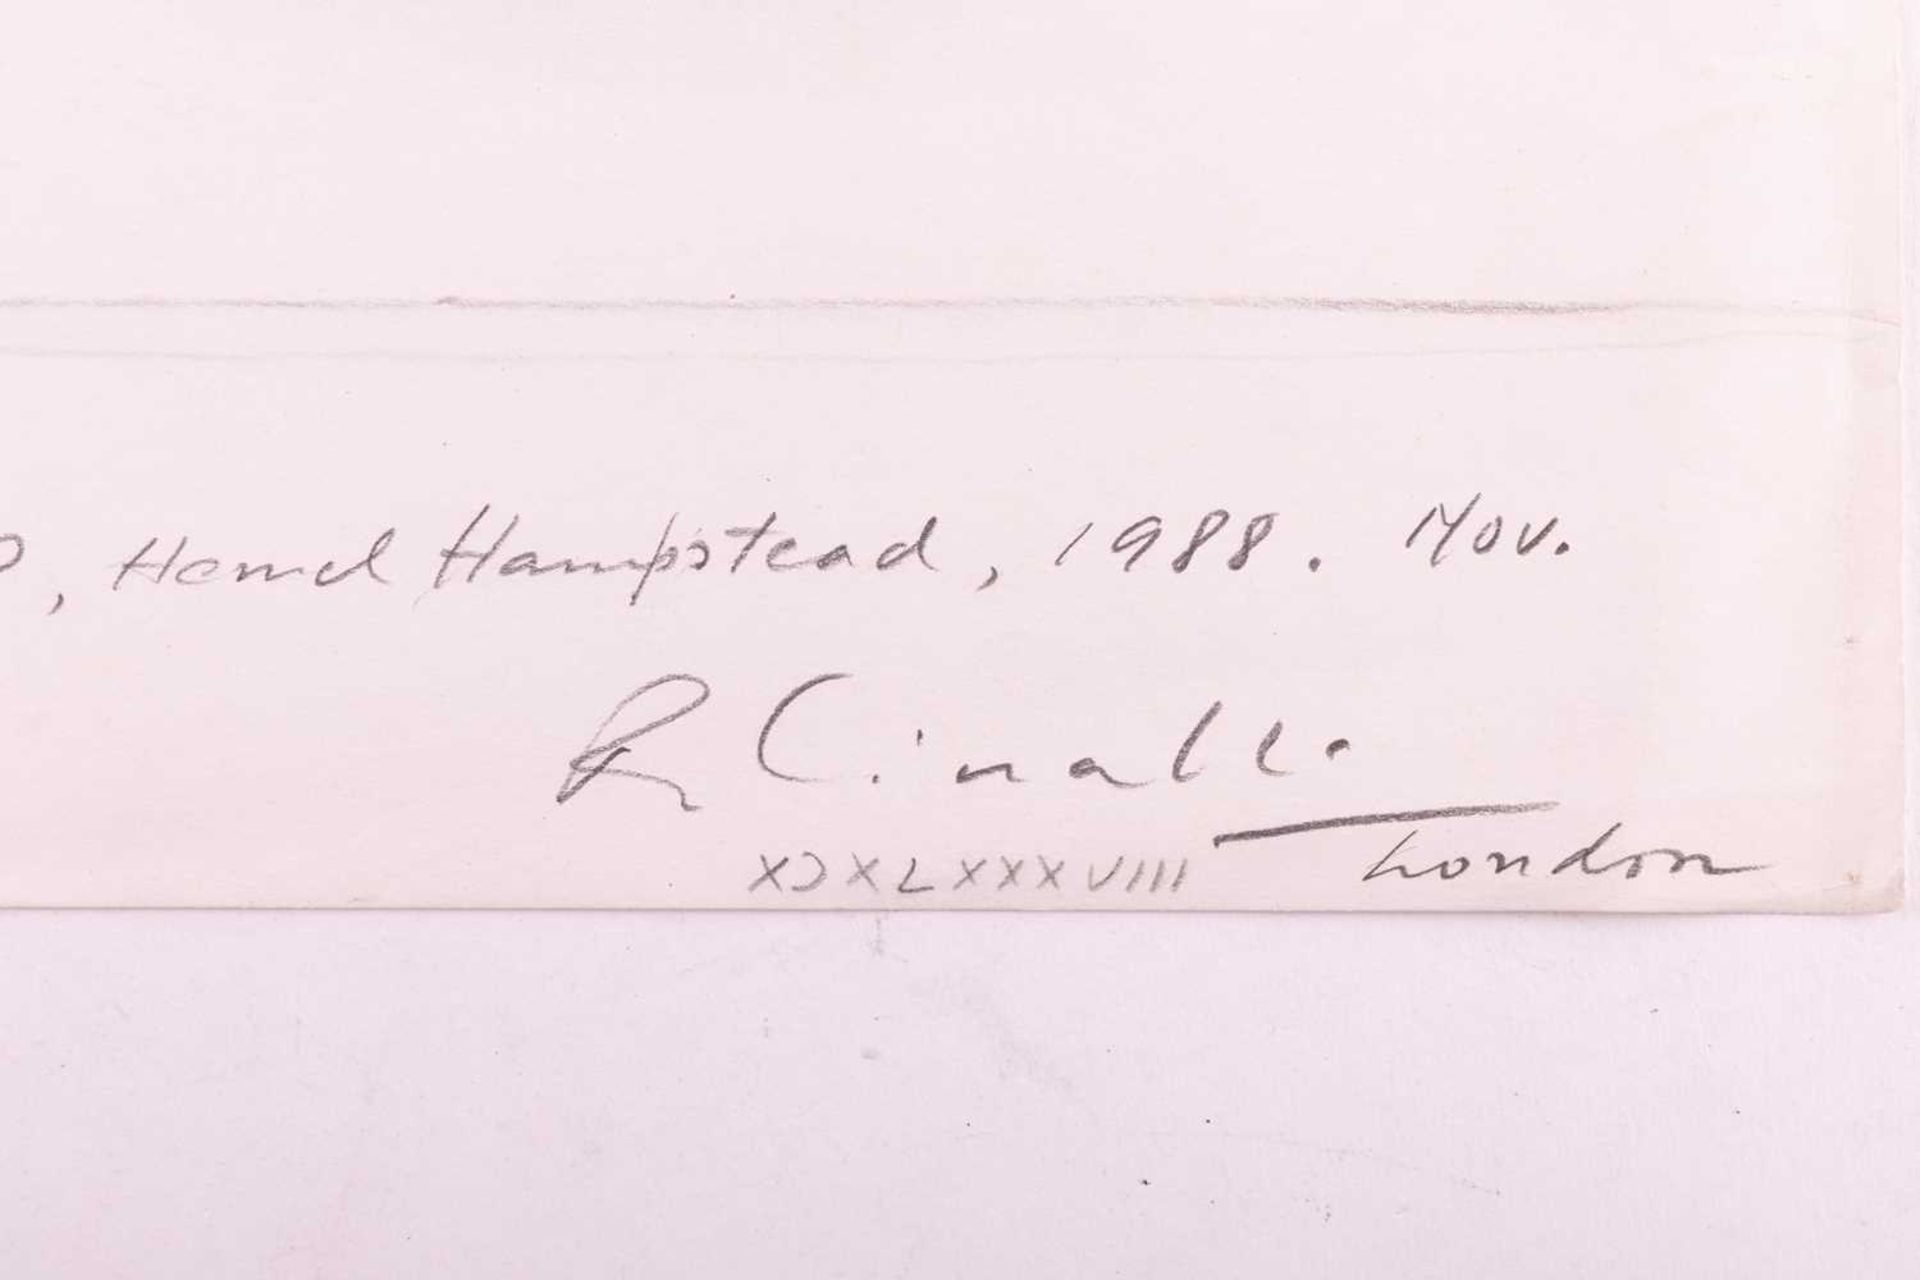 , Hemel Hampstead, 1988. Nov.
R Cinalli
London
XDXLXXXVIII